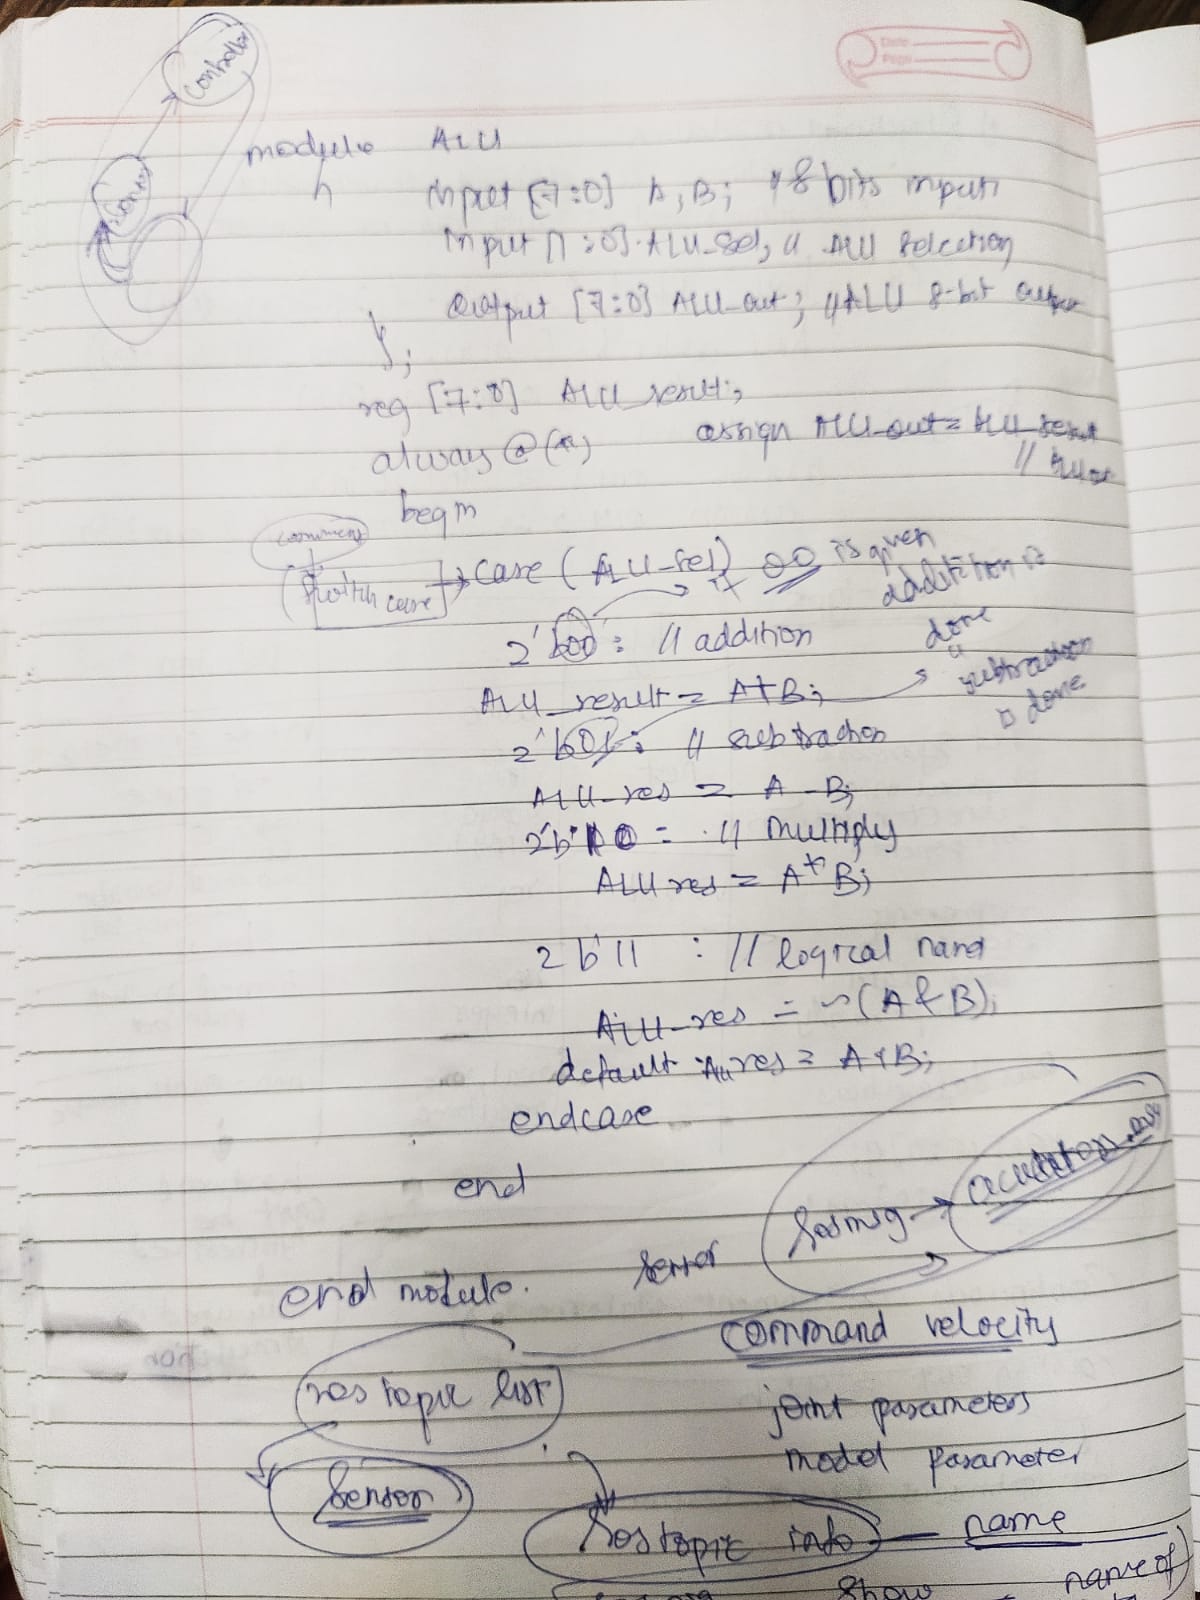 Date
Page
Controller
module ALU
input [7:0] A, B; // 8 bits inputs
input [1:0] ALU_Sel, // ALU Selection
Output [7:0] ALU_out; // ALU 8-bit output
);
reg [7:0] ALU_result;
always @(*)
assign ALU_out = ALU_result
//
begin
comment
(switch case)
case (ALU_Sel)
If 00 is given addition is done
2'b00: // addition
ALU_result = A+B;
" subtraction is done
2'b01: // subtraction
ALU_res = A - B;
2'b10 = // Multiply
ALU res = A * B;
2 b'11 : // logical nand
ALU_res = ~(A & B);
default : ALU res = A+B;
endcase
end
end module.
rosmsg
command velocity
ros topic list
joint parameters
model parameter
Sensor
ros topic info — name
Show name of